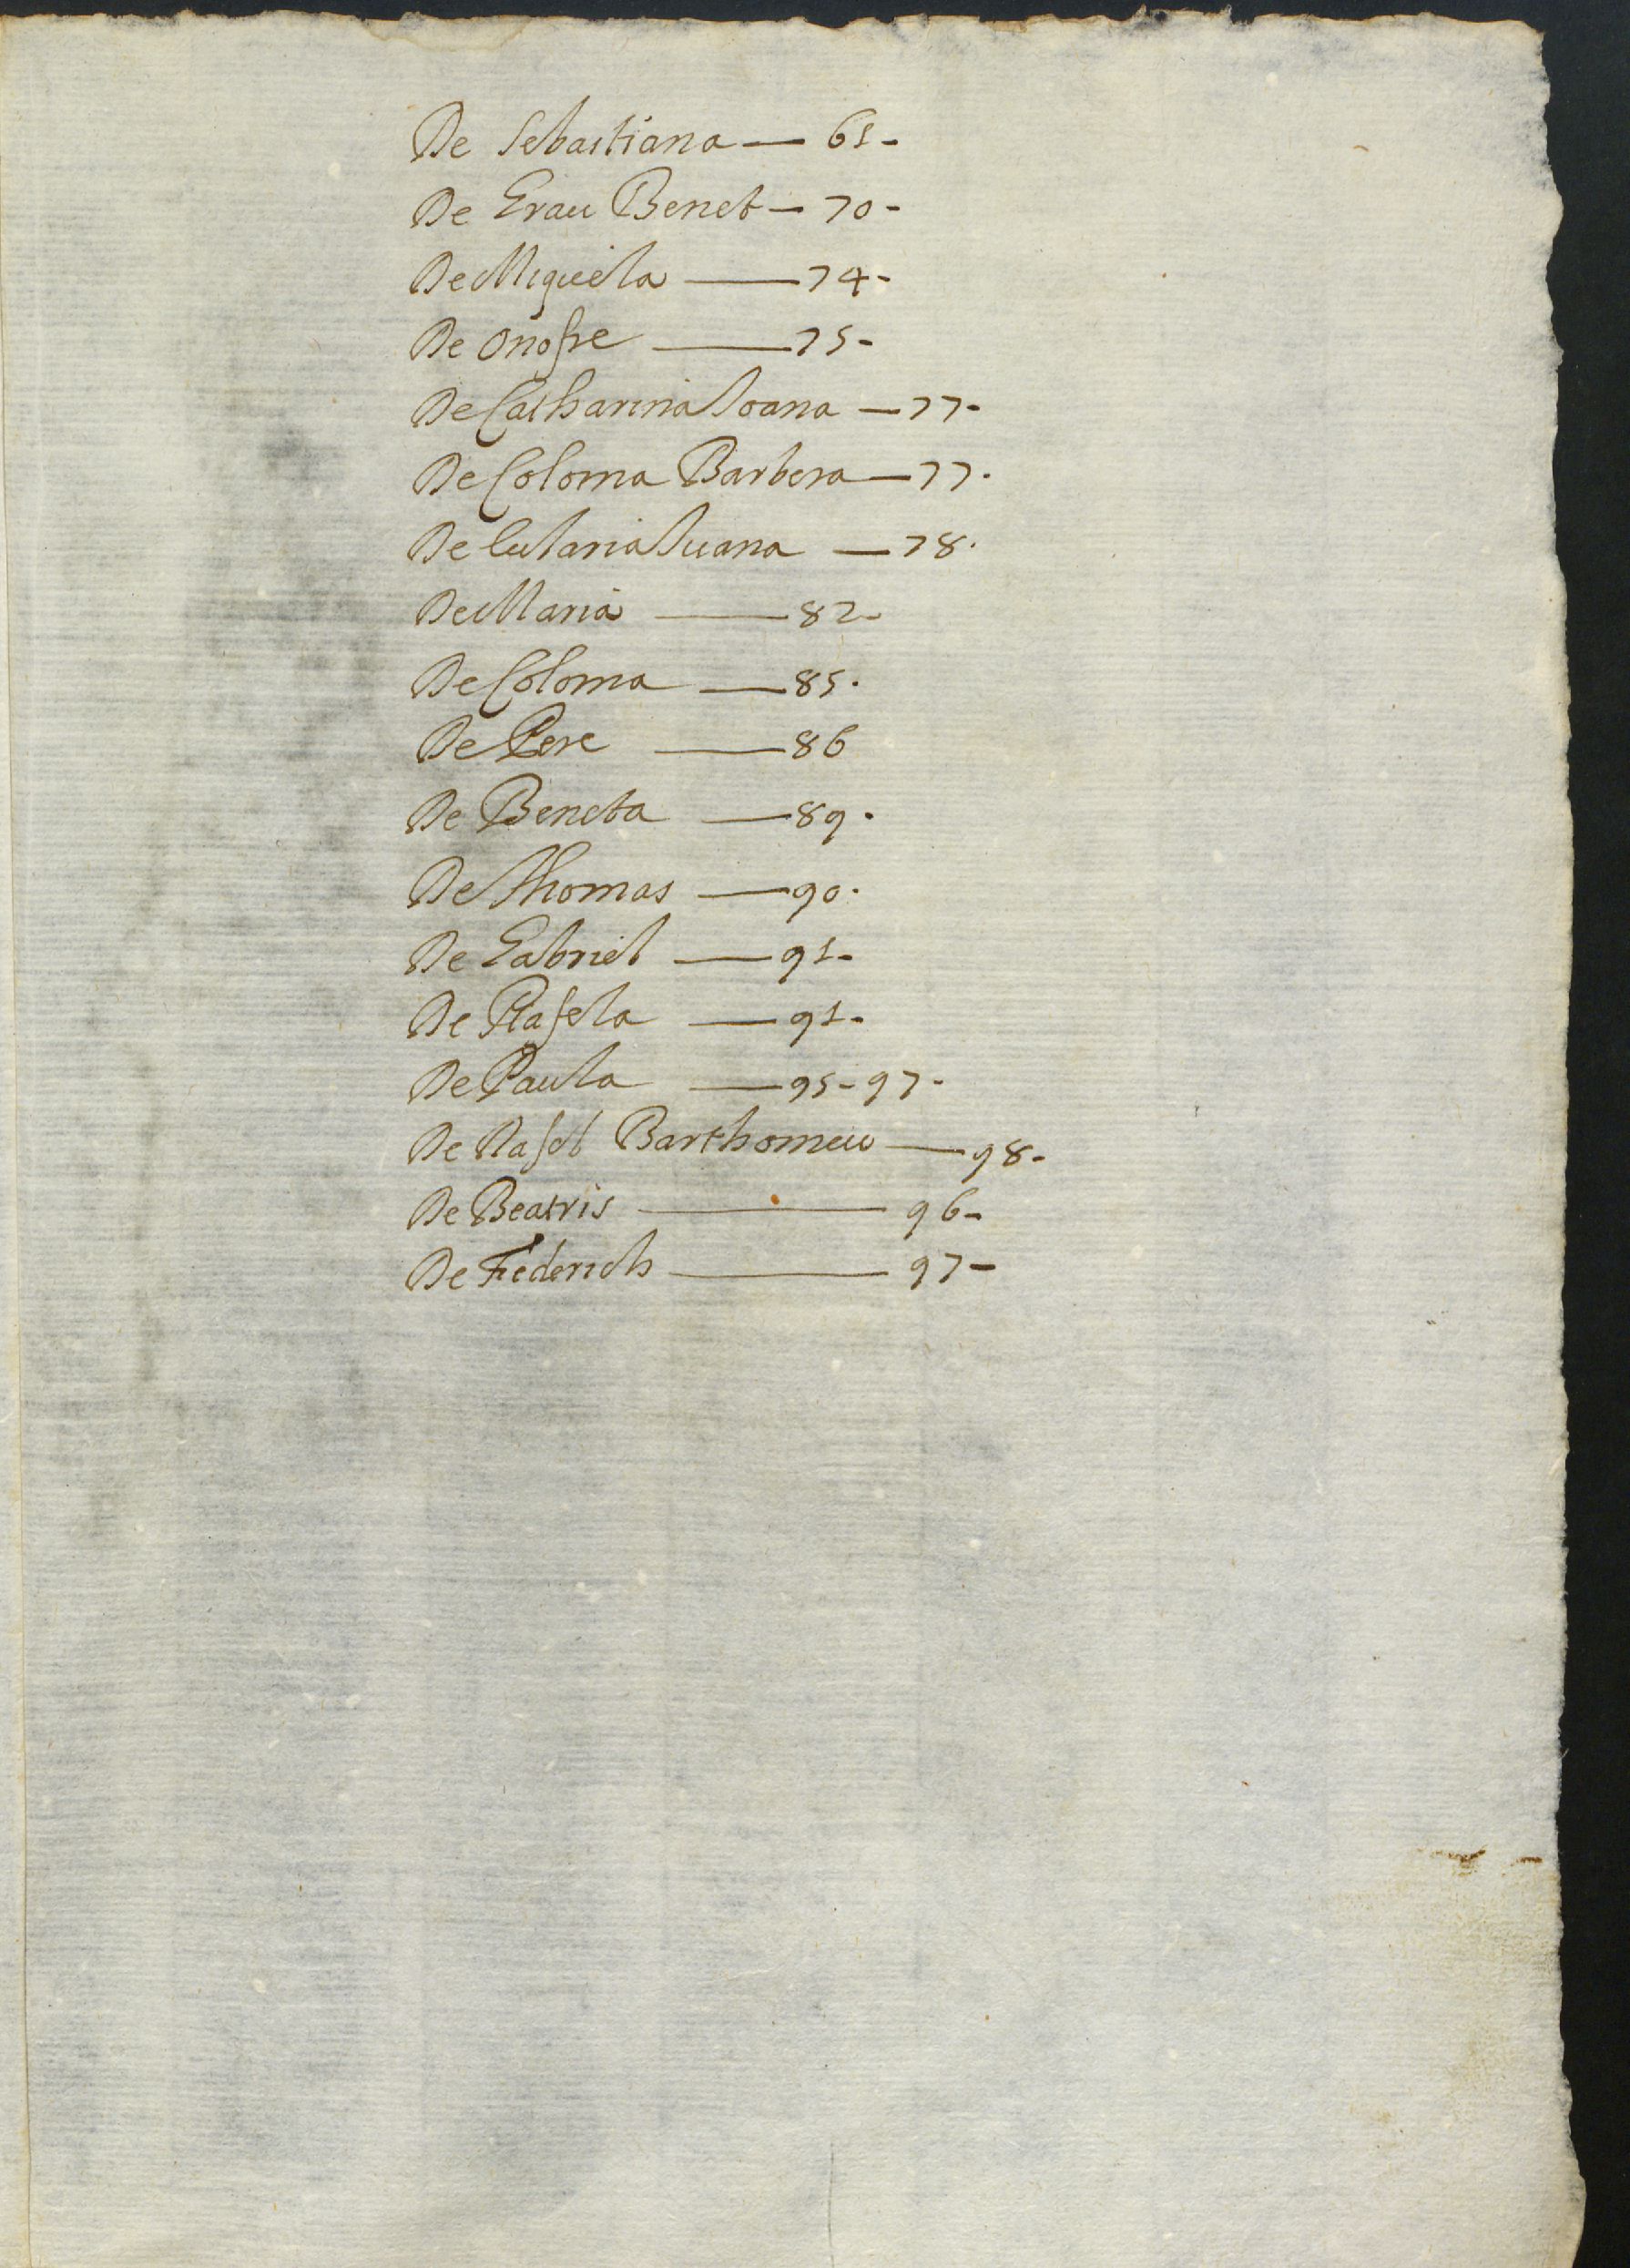 De Sebastiana — 61-
De Grau Benet — 70-
De Miquela — 74-
De Onofre — 75-
De Catharina Joana — 77-
De Coloma Barbera — 77.
De Eularia Juana — 78.
De Maria — 82-
De Coloma — 85.
De Pere — 86
De Beneta — 89.
De Thomas — 90.
De Gabriel — 91-
De Rafela — 91-
De Paula — 95-97-
De Rafel Barthomeu — 98-
De Beatris — 96-
De Federich — 97-